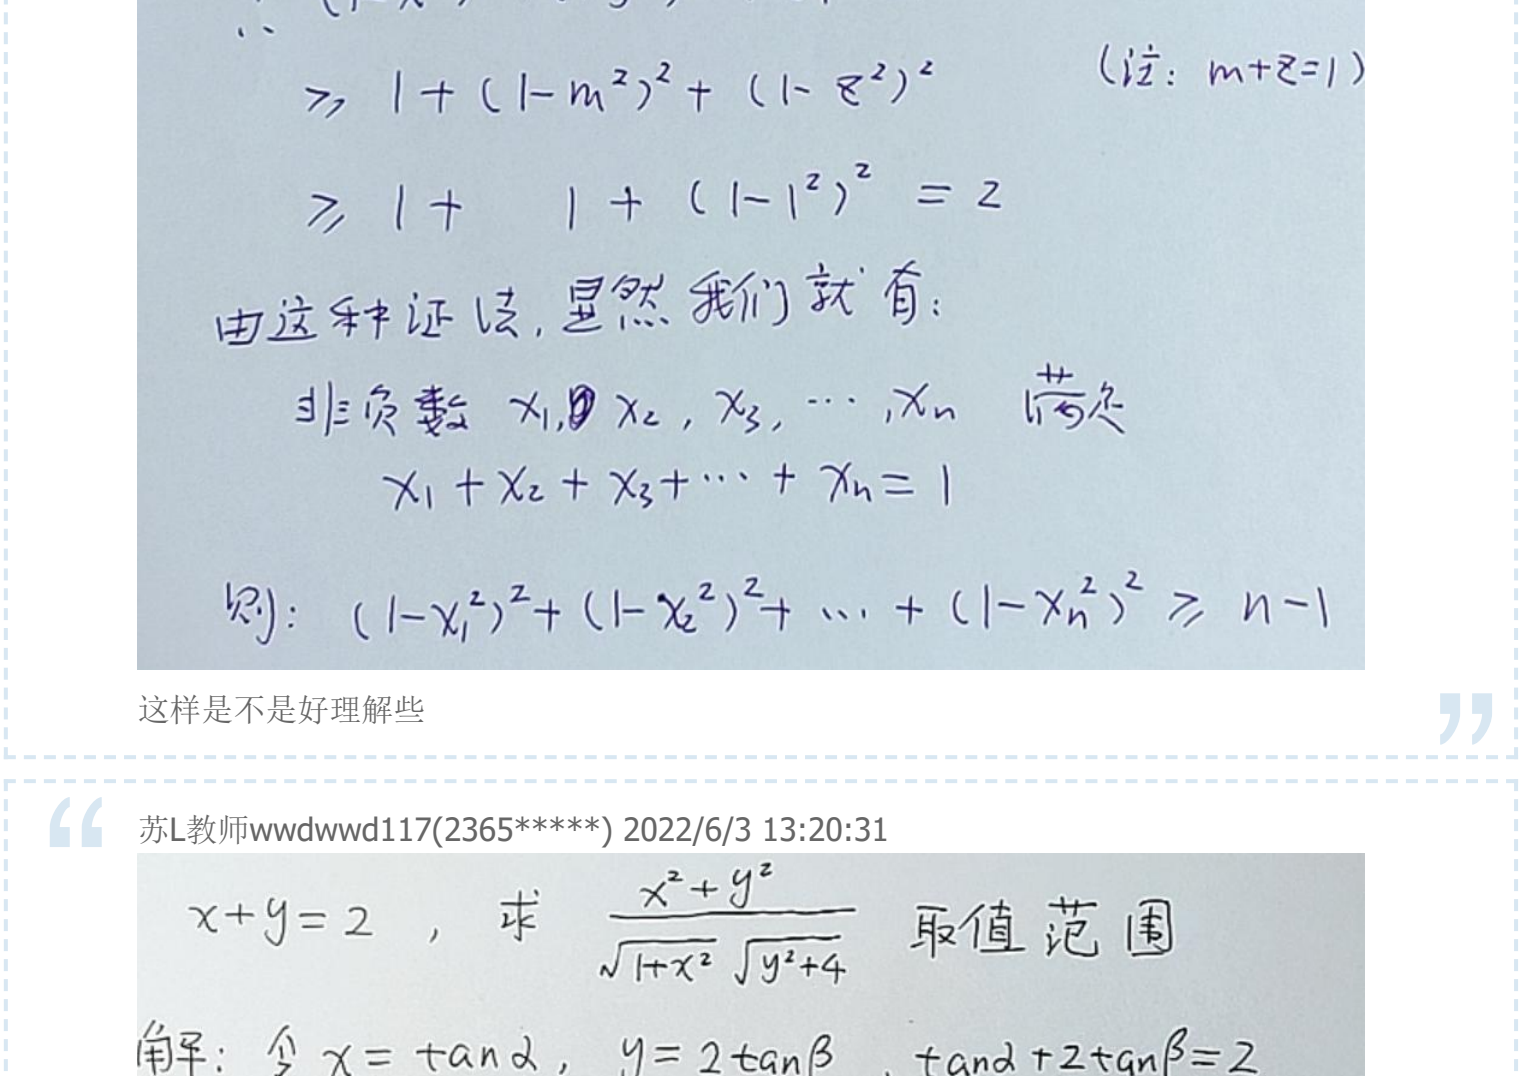 ≥ 1 + (1-m²)² + (1-z²)² (注: m+z=1)
≥ 1 + 1 + (1-1²)² = 2
由这种证法,显然我们就有:
非负数 x₁, x₂, x₃, …, xₙ 满足
x₁ + x₂ + x₃ + … + xₙ = 1
则: (1-x₁²)² + (1-x₂²)² + … + (1-xₙ²)² ≥ n-1
这样是不是好理解些
苏L教师wwdwwd117(2365*****) 2022/6/3 13:20:31
x+y=2 , 求 (x²+y²)/(√(1+x²) √(y²+4)) 取值范围
解: 令 x = tanα, y = 2tanβ , tanα+2tanβ=2